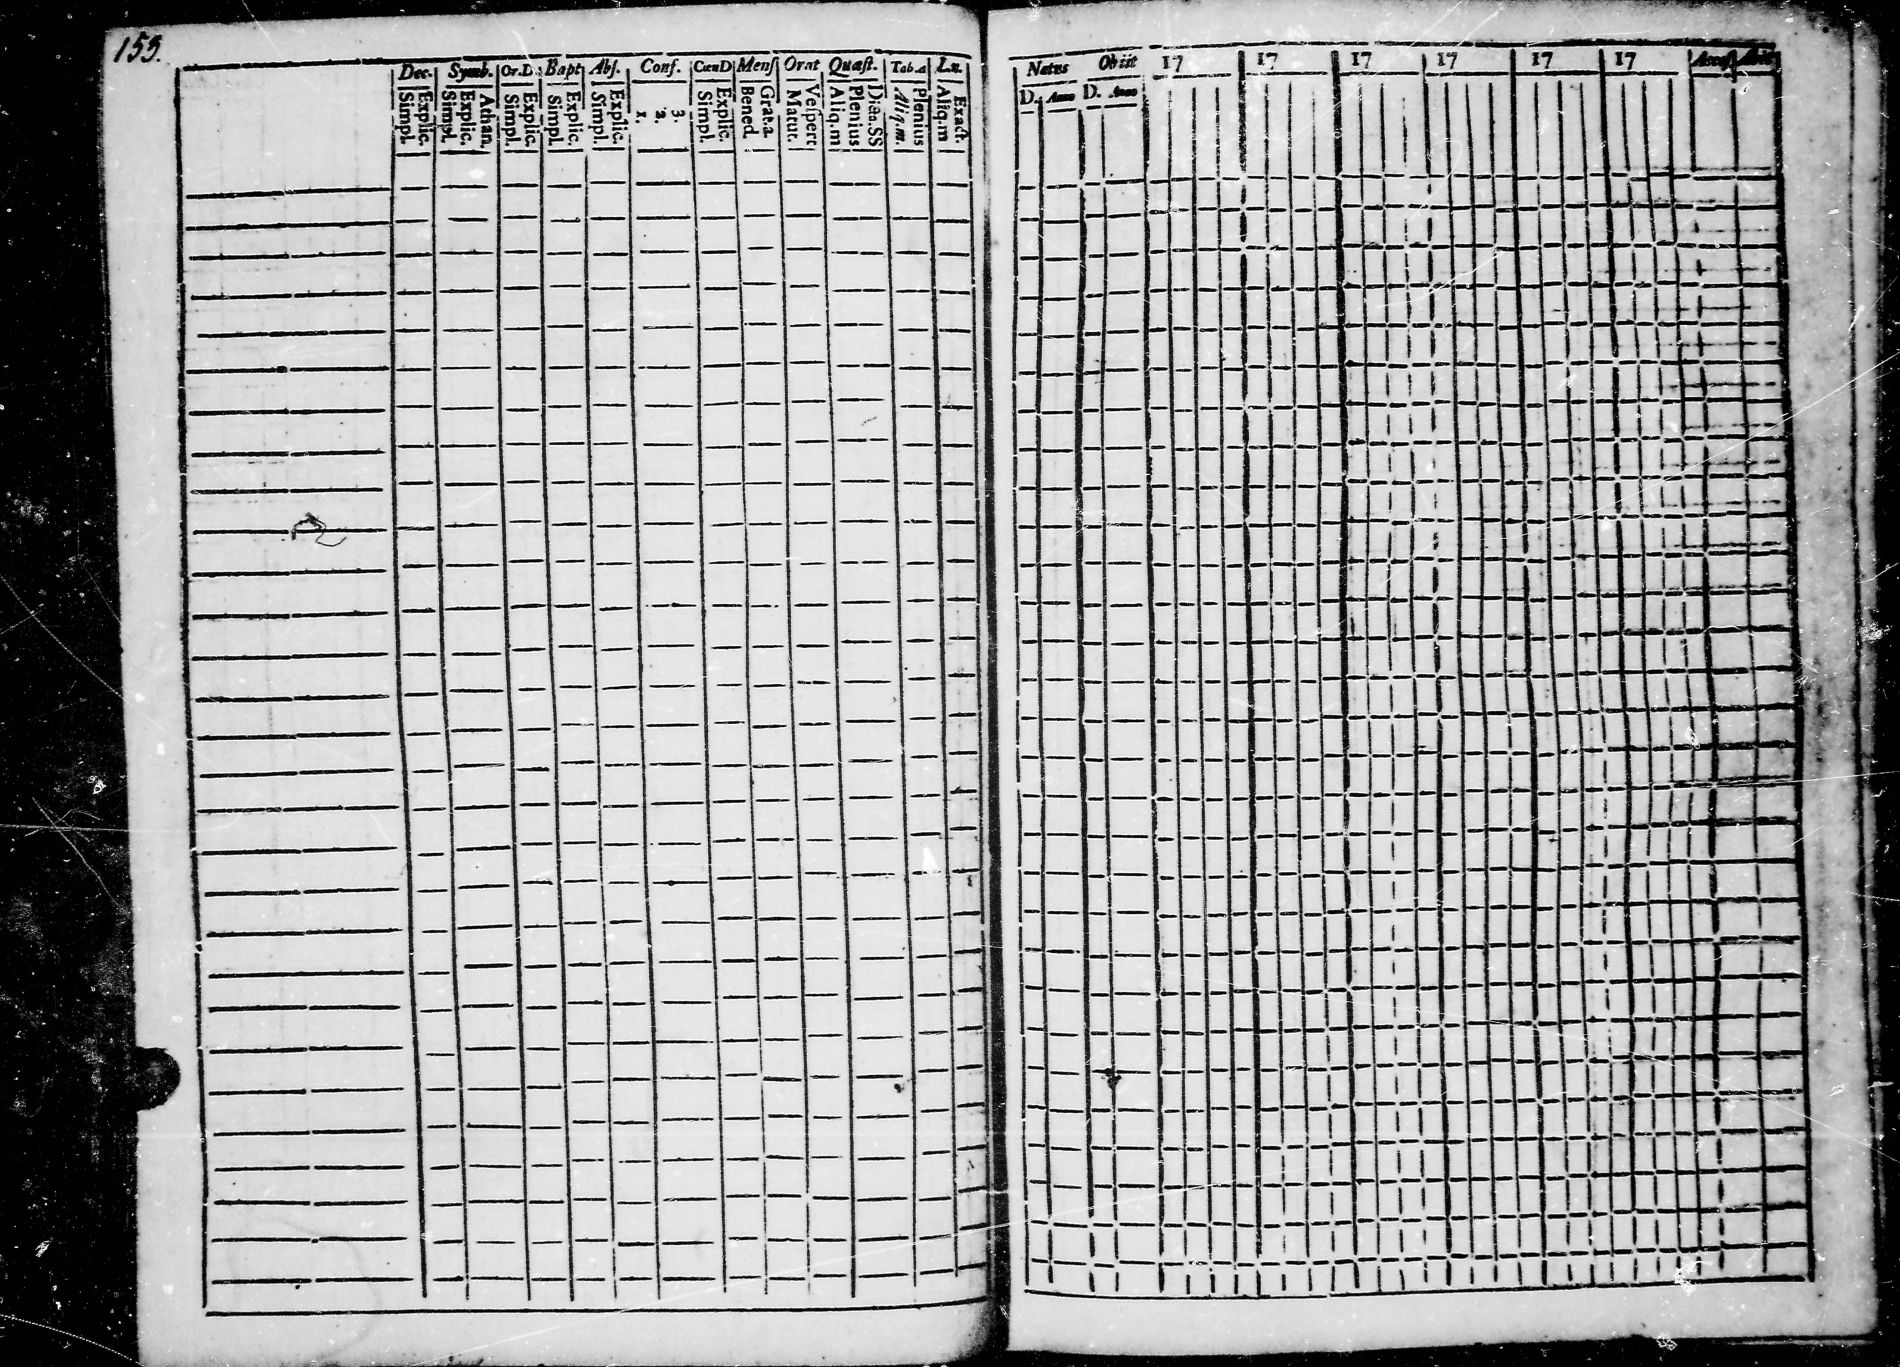 155.
Dec. Symb. Or.D. Bapt Abs. Conf. CœnD Mens Orat Quæst. Tab.æ L.n.
Simpl. Explic. Simpl. Explic. Athan. Simpl. Explic. Simpl. Explic. Simpl. Explic. 1. 2. 3. Simpl. Explic. Bened. Grat.a Matut. Vesper t Aliq.m Plenius Dicta.SS Aliq.m. Plenius Aliq.m Exact.
Natus Obiit 17 17 17 17 17 17 Access Abiit
D. Anno D. Anno